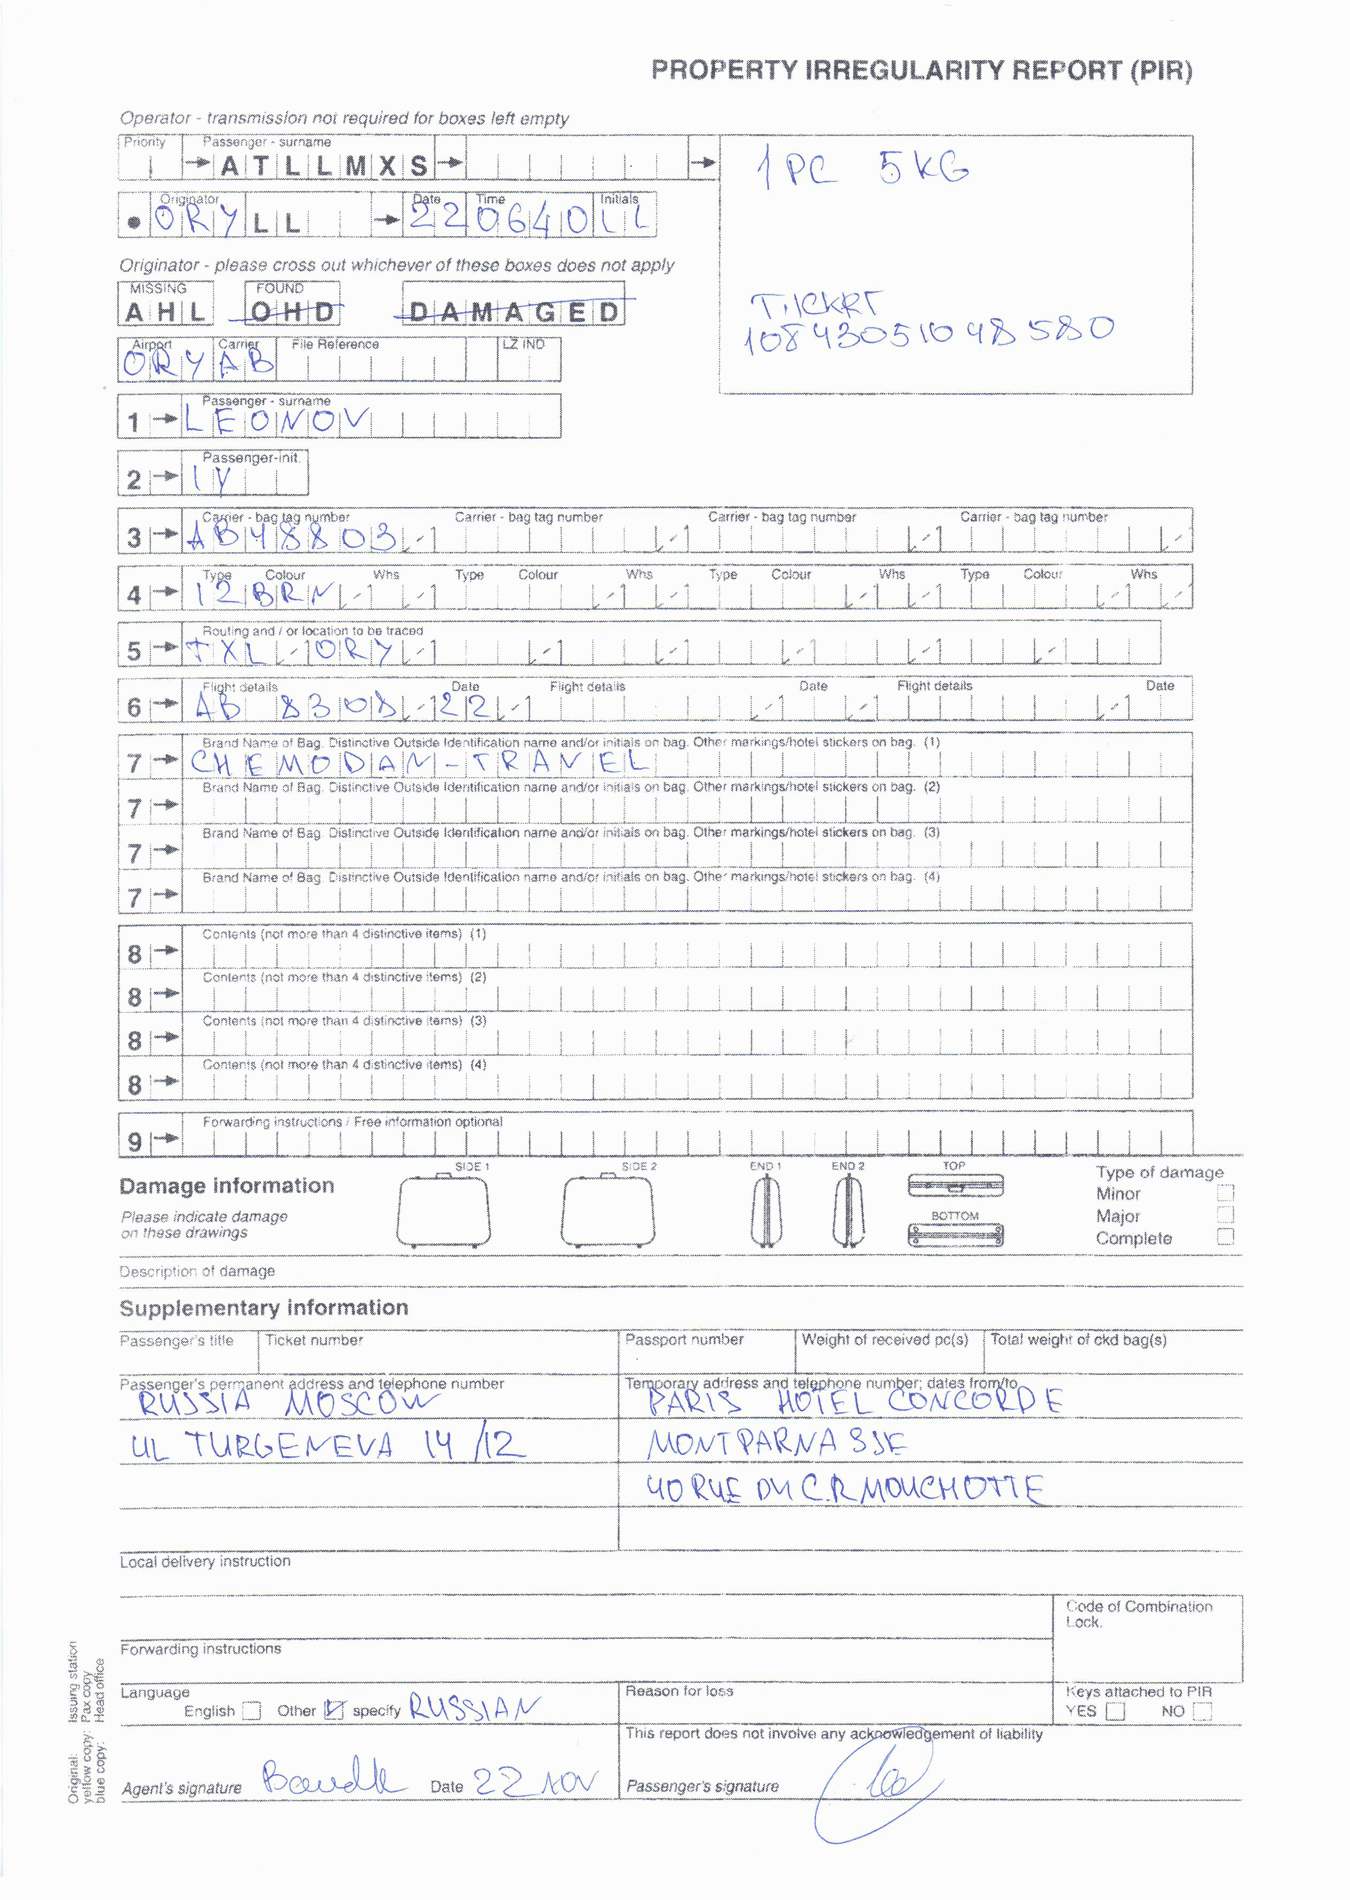 PROPERTY IRREGULARITY REPORT (PIR)
Operator - transmission not required for boxes left empty
Priority Passenger - surname
ATLLMXS
1 PC 5 KG
Originator Date Time Initials
ORY LL 22 0640 LL
Originator - please cross out whichever of these boxes does not apply
MISSING FOUND
AHL OHD DAMAGED
TICKRT
108430510 48 580
Airport Carrier File Reference LZ IND
ORY AB
Passenger - surname
1 LEONOV
Passenger-init.
2 IY
Carrier - bag tag number Carrier - bag tag number Carrier - bag tag number Carrier - bag tag number
3 AB48803
Type Colour Whs Type Colour Whs Type Colour Whs Type Colour Whs
4 12BRN
Routing and / or location to be traced
5 TXL ORY
Flight details Date Flight details Date Flight details Date
6 AB 8308 22
Brand Name of Bag. Distinctive Outside Identification name and/or initials on bag. Other markings/hotel stickers on bag. (1)
7 CHEMODAN-TRAVEL
Brand Name of Bag. Distinctive Outside Identification name and/or initials on bag. Other markings/hotel stickers on bag. (2)
7
Brand Name of Bag. Distinctive Outside Identification name and/or initials on bag. Other markings/hotel stickers on bag. (3)
7
Brand Name of Bag. Distinctive Outside Identification name and/or initials on bag. Other markings/hotel stickers on bag. (4)
7
Contents (not more than 4 distinctive items) (1)
8
Contents (not more than 4 distinctive items) (2)
8
Contents (not more than 4 distinctive items) (3)
8
Contents (not more than 4 distinctive items) (4)
8
Forwarding instructions / Free information optional
9
SIDE 1 SIDE 2 END 1 END 2 TOP
Damage information
Type of damage
Minor
Please indicate damage
on these drawings
BOTTOM
Major
Complete
Description of damage
Supplementary information
Passenger's title Ticket number Passport number Weight of received pc(s) Total weight of ckd bag(s)
Passenger's permanent address and telephone number Temporary address and telephone number; dates from/to
RUSSIA MOSCOW PARIS HOTEL CONCORDE
UL TURGENEVA 14/12 MONTPARNASSE
40 RUE DU C.R MOUCHOTTE
Local delivery instruction
Code of Combination
Lock.
Forwarding instructions
Language Reason for loss Keys attached to PIR
English Other specify RUSSIAN YES NO
This report does not involve any acknowledgement of liability
Agent's signature Date 22 NOV Passenger's signature
Original: Issuing station
yellow copy: Pax copy
blue copy: Head office